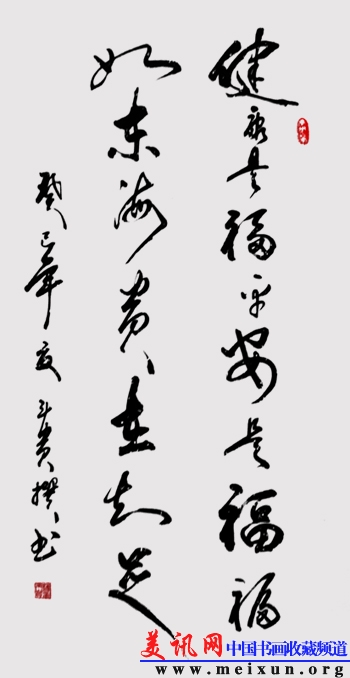 健康是福平安是福福
如东海贵在知足
癸巳年夏斗贵撰书
美讯网 中国书画收藏频道
www.meixun.org